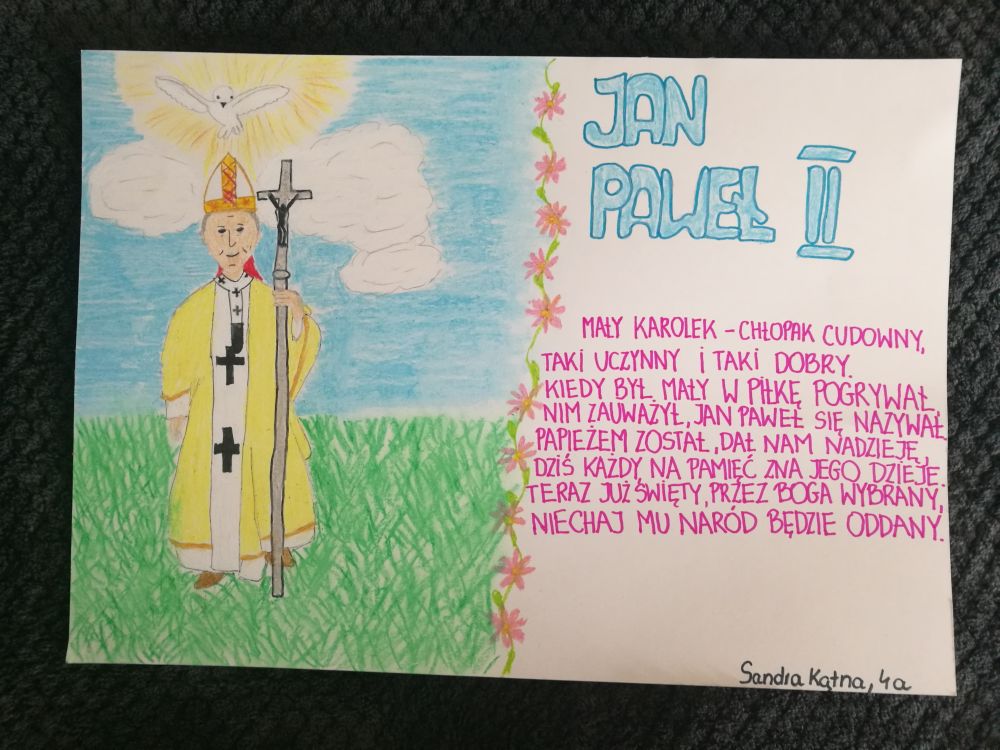 JAN
PAWEŁ II
MAŁY KAROLEK – CHŁOPAK CUDOWNY,
TAKI UCZYNNY I TAKI DOBRY.
KIEDY BYŁ MAŁY W PIŁKĘ POGRYWAŁ,
NIM ZAUWAŻYŁ, JAN PAWEŁ SIĘ NAZYWAŁ
PAPIEŻEM ZOSTAŁ, DAŁ NAM NADZIEJĘ,
DZIŚ KAŻDY NA PAMIĘĆ ZNA JEGO DZIEJE.
TERAZ JUŻ ŚWIĘTY, PRZEZ BOGA WYBRANY,
NIECHAJ MU NARÓD BĘDZIE ODDANY.
Sandra Kątna, 4a